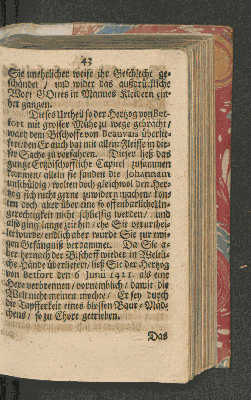 43
Sie unehrlicher weise ihr Geschlecht ge-
schändet / und wider das außdrückliche
Wort GOttes in Mannes Kleidern ein-
her gangen.
Dieses Urtheil so der Hertzog von Bet-
fort mit grosser Mühe zu wege gebracht /
ward dem Bischoffe von Beauvais überlie-
fert / den Er auch bat mit allem Fleisse in die-
ser Sache zu verfahren. Dieser ließ das
gantze Ertzbischoffliche Capitel zusammen
kommen / allein sie fanden die Johannam
unschuldig / wolten doch gleichwol den Hertz-
zog sich nicht gerne zuwidern machen / kon-
ten doch aber über eine so offenbarliche Un-
gerechtigkeit nicht schliessig werden / und
also ging lange zeit hin / ehe Sie verurthei-
let wurde / endlich aber wurde Sie zur ewi-
gen Gefängniß verdammet. Da Sie a-
ber hernach der Bischoff wieder in Weltli-
che Hände überliefert / ließ Sie der Hertzog
von Betfort den 6 Junii 1431. als eine
Hexe verbrennen / vornemblich / damit die
Welt nicht meinen mochte / Er sey durch
die Tapfferkeit eines blossen Baur-Mäd-
chens / so zu Chore getrieben.
Das